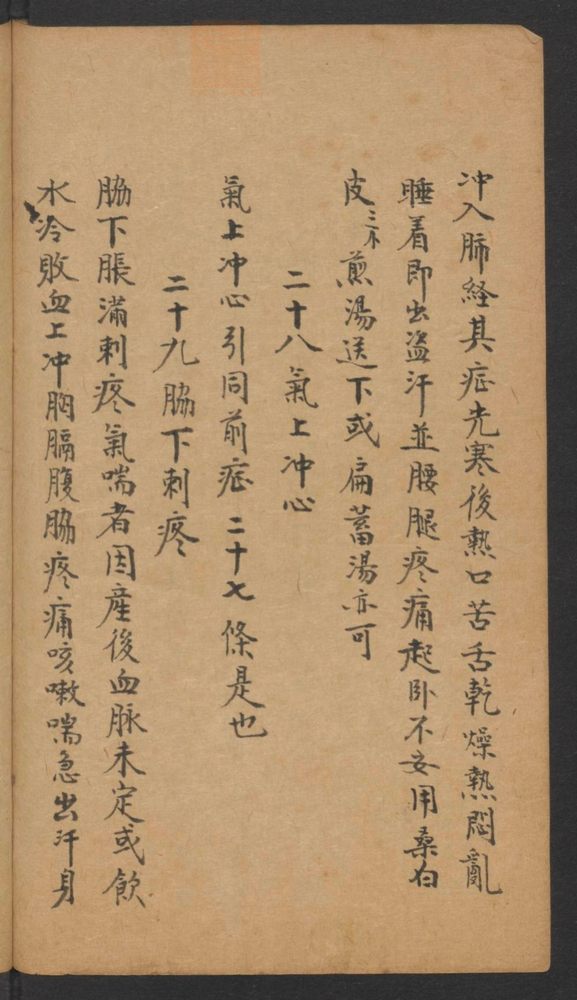 冲入肺経其症先寒後熱口苦舌乾燥熱悶亂
睡着即出盗汗並腰腿疼痛起卧不安用桑白
皮三个煎湯送下或扁蓄湯亦可
二十八氣上冲心
氣上冲心引同前症二十七條是也
二十九脇下刺疼
脇下脹滿刺疼氣喘者因産後血脉未定或飲
水冷敗血上冲胸膈腹脇疼痛咳嗽喘急出汗身